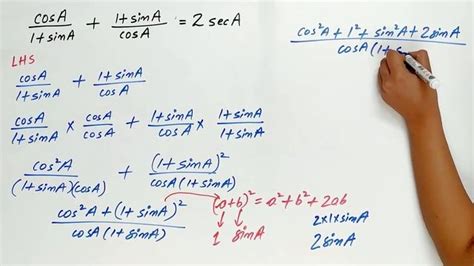 cosA/(1+sinA) + (1+sinA)/cosA = 2 secA
LHS
cosA/(1+sinA) + (1+sinA)/cosA
cosA/(1+sinA) × cosA/cosA + (1+sinA)/cosA × (1+sinA)/(1+sinA)
cos²A/((1+sinA)(cosA)) + (1+sinA)²/(cosA(1+sinA))
(cos²A + (1+sinA)²)/(cosA(1+sinA))
(a+b)² = a² + b² + 2ab
1 sinA
2×1×sinA
2sinA
(cos²A + 1² + sin²A + 2sinA)/(cosA(1+s